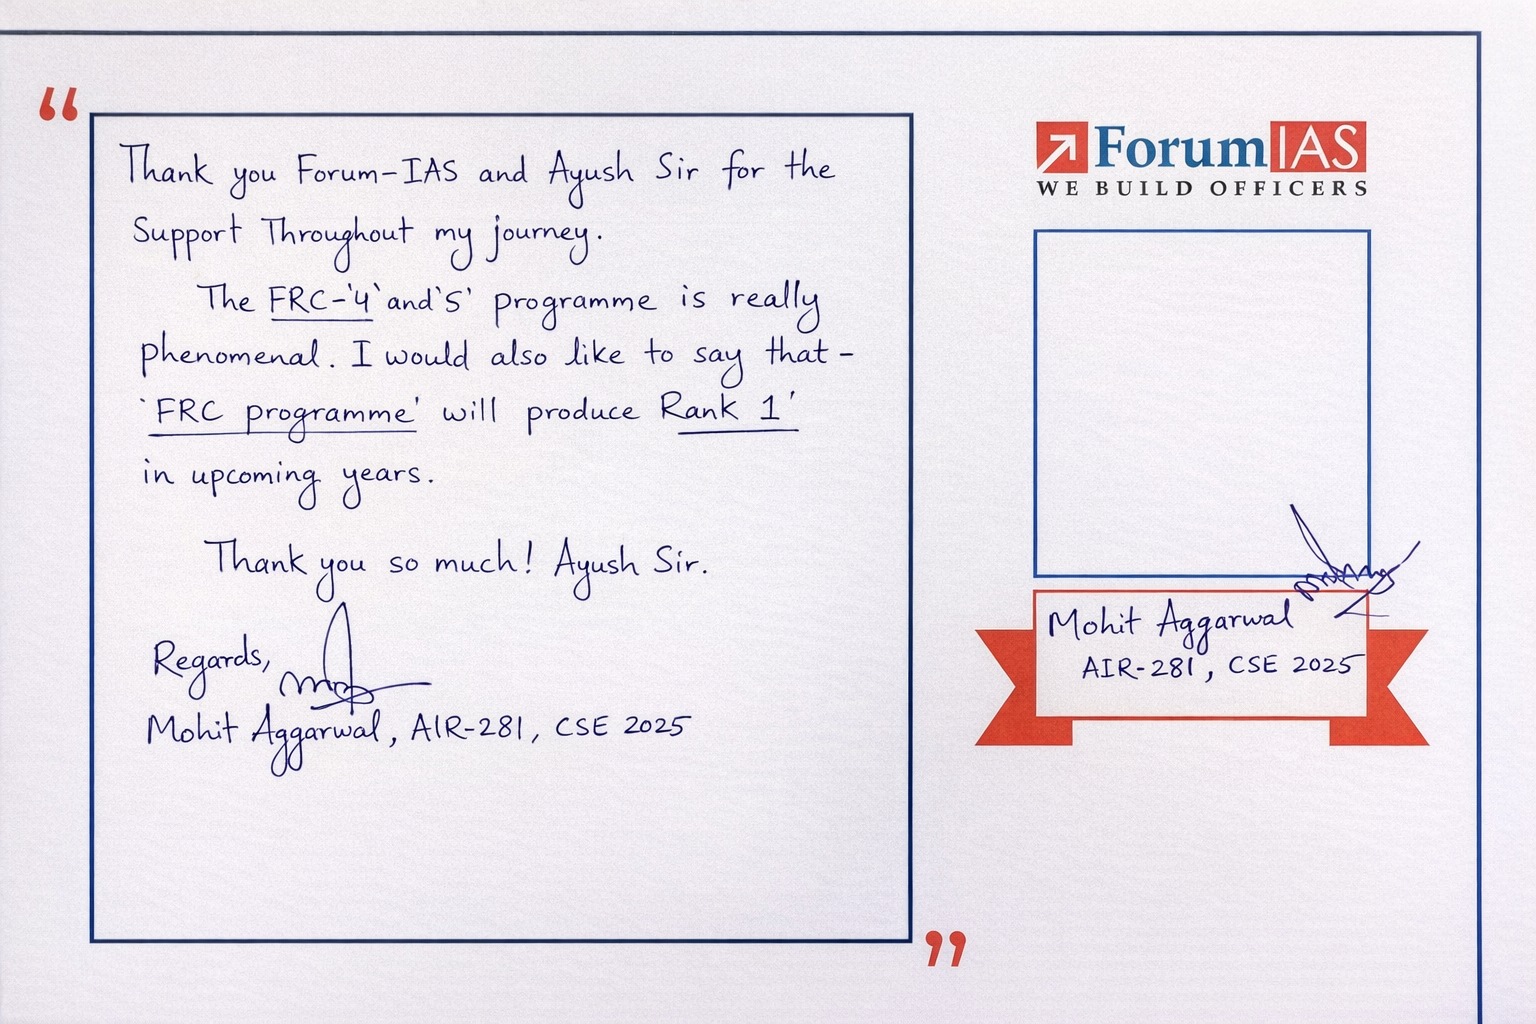 Thank you Forum-IAS and Ayush Sir for the
Support Throughout my journey.
The FRC-'4' and 'S' programme is really
phenomenal. I would also like to say that -
'FRC programme' will produce Rank 1'
in upcoming years.
Thank you so much! Ayush Sir.
Regards,
Mohit Aggarwal, AIR-281, CSE 2025
ForumIAS
WE BUILD OFFICERS
Mohit Aggarwal
AIR-281, CSE 2025